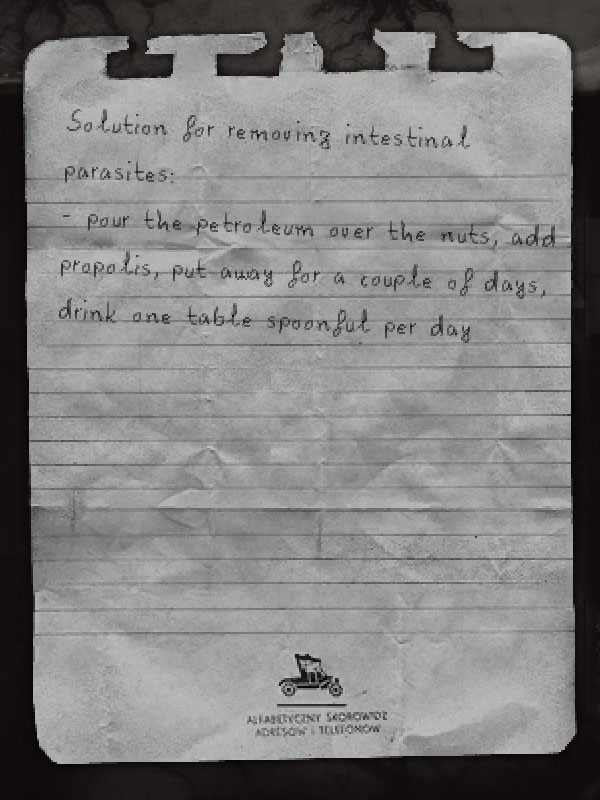 Solution for removing intestinal
parasites:
- pour the petroleum over the nuts, add
propolis, put away for a couple of days,
drink one table spoonful per day
ALFABETYCZNY SKOROWIDZ
ADRESÓW I TELEFONÓW